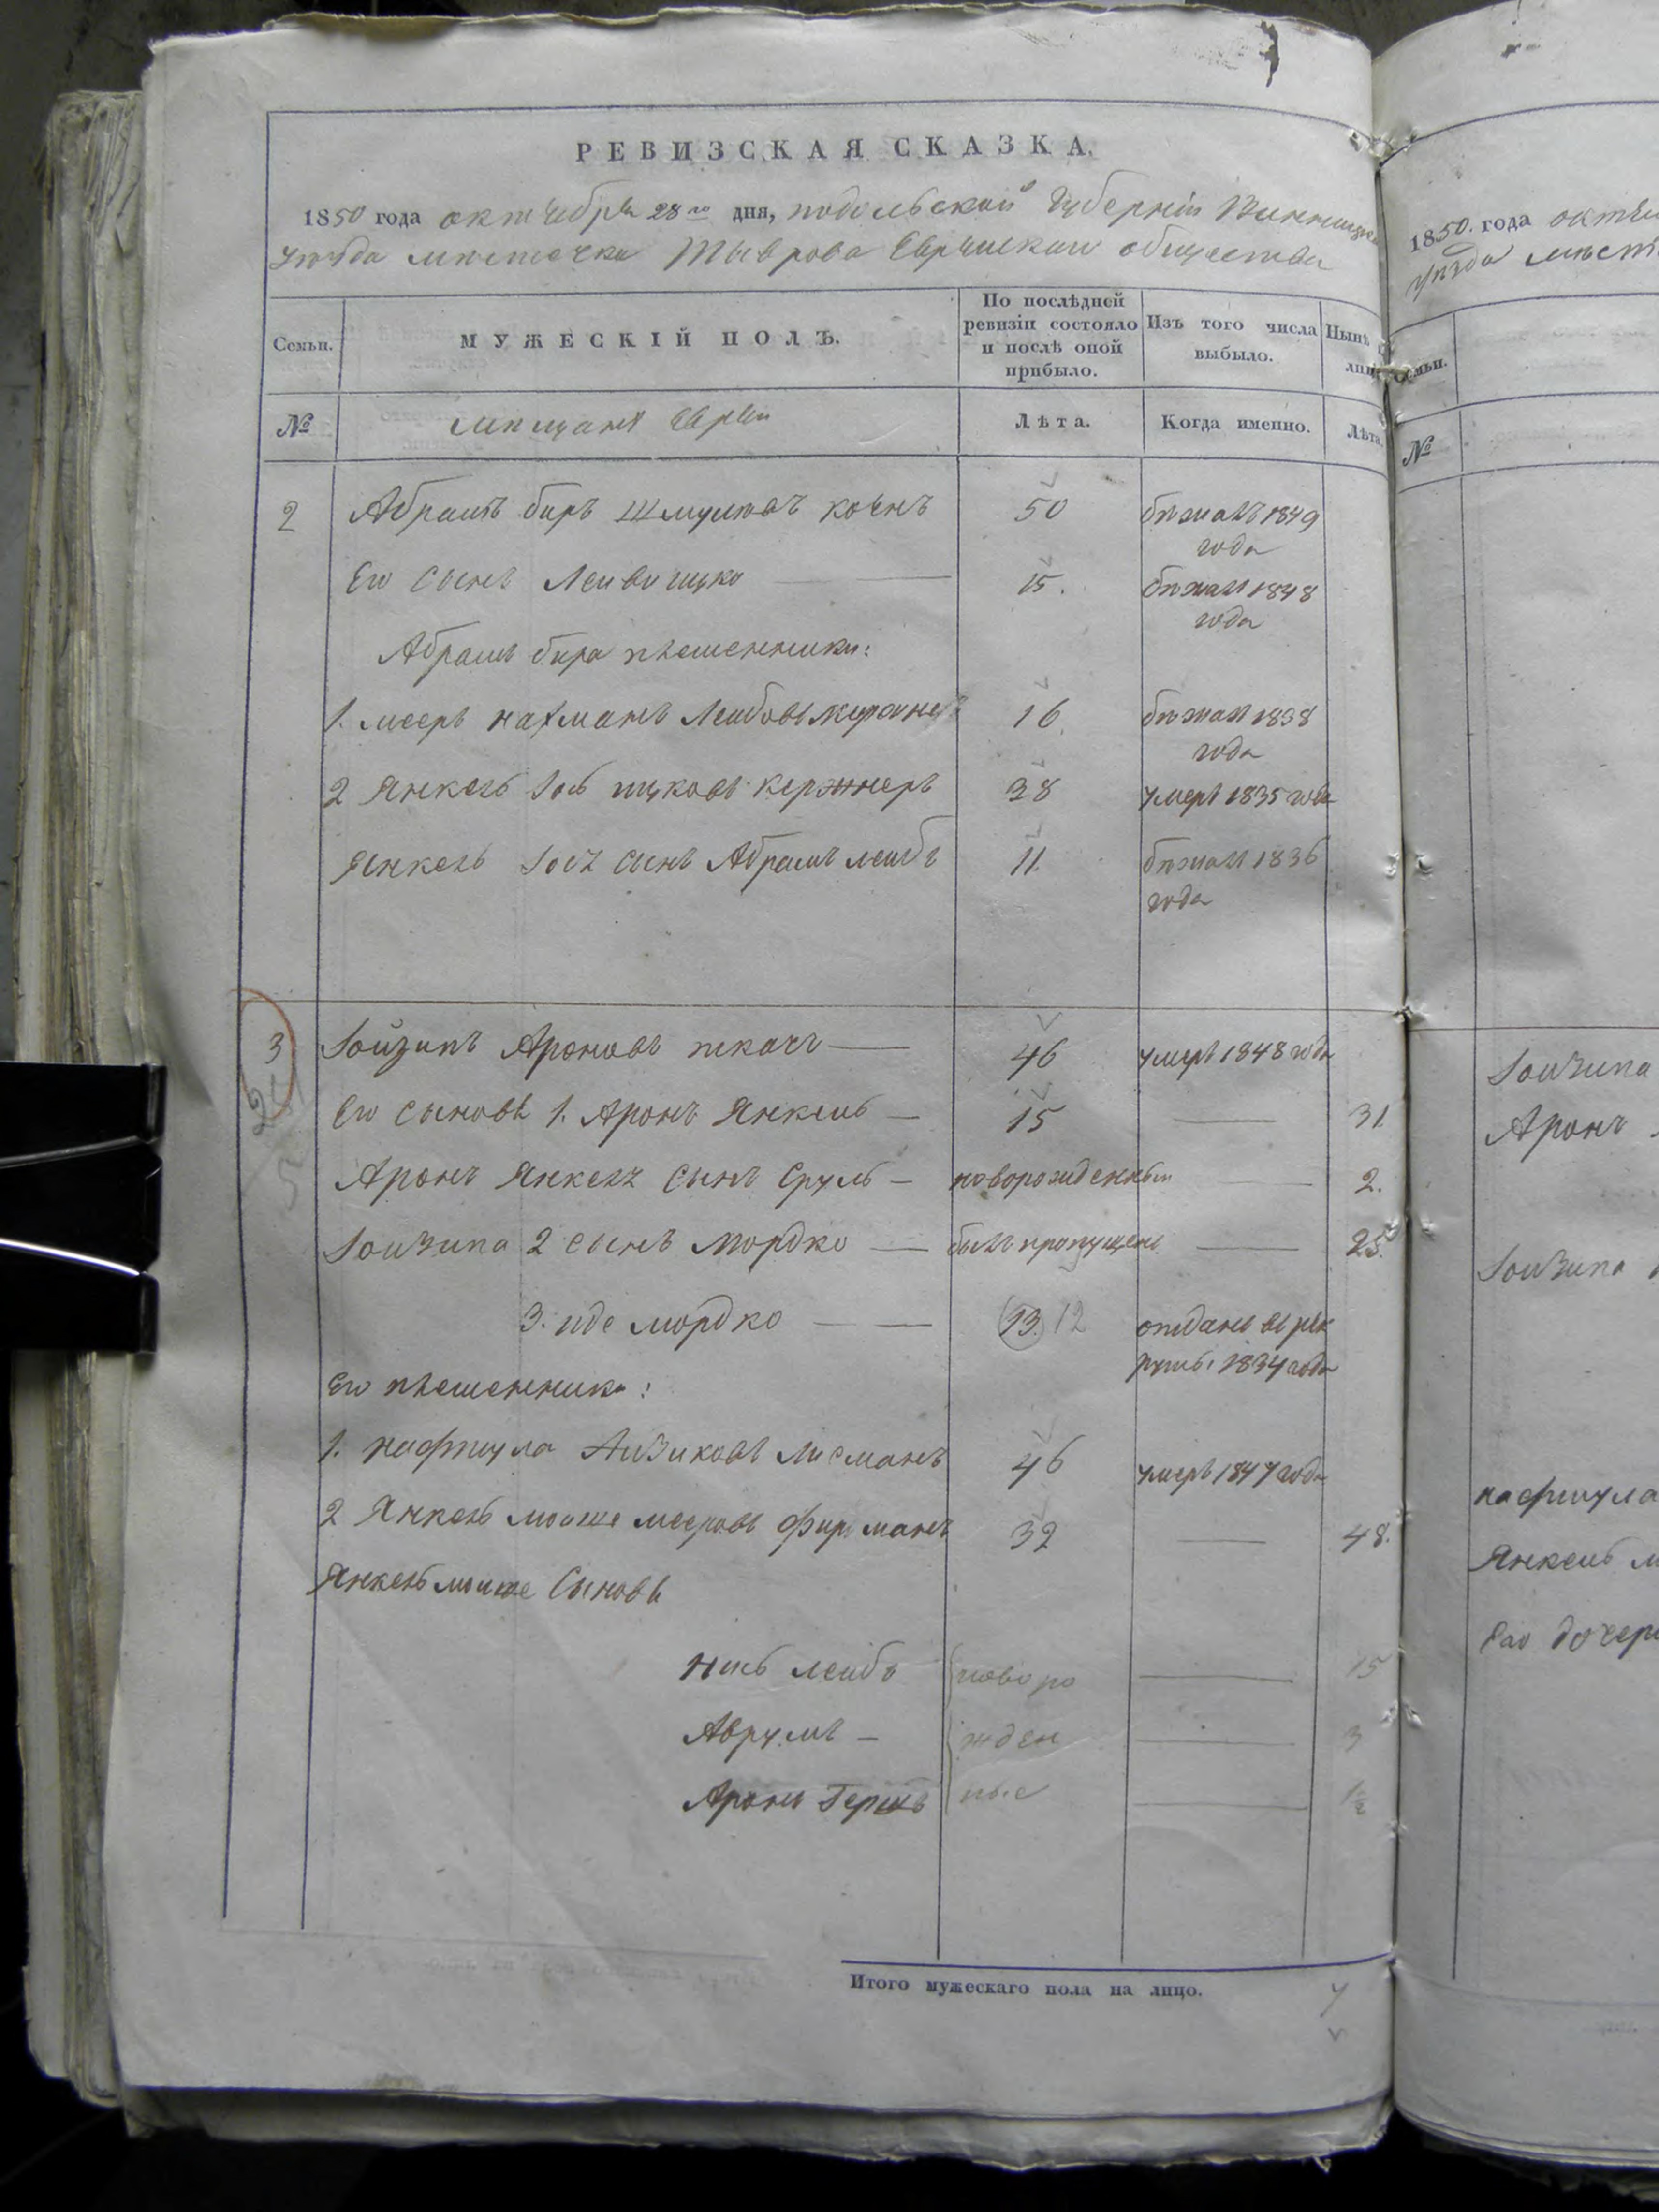 РЕВИЗСКАЯ СКАЗКА.
1850 года октября 28го дня, подольской губерніи Винницкаго
уѣзда мѣстечка Тыврова Еврейскаго общества
Семьи.
МУЖЕСКІЙ ПОЛЪ.
По послѣдней ревизіи состояло и послѣ оной прибыло.
Изъ того числа выбыло.
Нынѣ
лиц
№
мѣщане Евреи
Лѣта.
Когда именно.
Лѣта.
2 Абрамъ беръ Шмулевъ 50 бѣжалъ 1849 года
Его сынъ Лейвицко 15. бѣжалъ 1848 года
Абрамъ бера племенники:
1. мееръ нахманъ Лейбовъ 16 бѣжалъ 1838 года
2 Янкель Іось ицковъ кержнеръ 38 умеръ 1835 года
Янкель Іося сынъ Абрамъ лейба 11. бѣжалъ 1836 года
3 Іойзипъ Ароновъ ткачъ 46 умеръ 1848 года
Его сыновья 1. Аронъ Янкель 15 31
Аронъ Янкеля сынъ Сруль новорожденный 2.
Іойзипа 2 сынъ Мордко былъ пропущенъ 25.
3. иде мордко 13. 12 отданъ въ рекруты 1834 года
Его племенники:
1. нафтула Айзиковъ Лисманъ 46 умеръ 1847 года
2 Янкель мойше мееровъ Фирманъ 32 48.
Янкель мойше Сыновья
лейба новоро 15
Аврумъ жден 3
Аронъ Гершъ ные 1/2
Итого мужескаго пола на лицо. 7
1850. года октя
уѣзда мѣст
Семьи.
№
Іойзипа
Аронъ
Іойзипа
нафтула
Янкель м
Его дочери